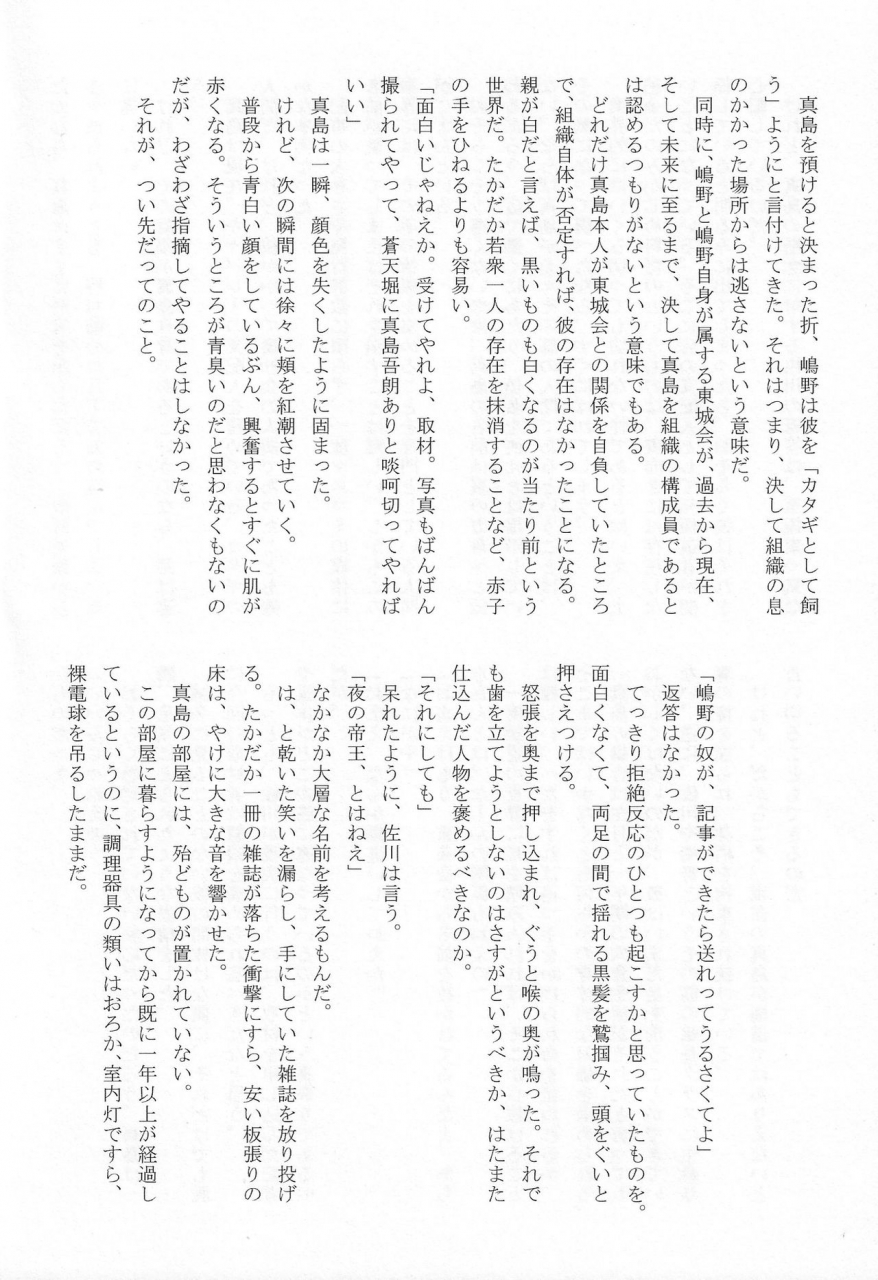 真島を預けると決まった折、嶋野は彼を「カタギとして飼
う」ようにと言付けてきた。それはつまり、決して組織の息
のかかった場所からは逃さないという意味だ。
　同時に、嶋野と嶋野自身が属する東城会が、過去から現在、
そして未来に至るまで、決して真島を組織の構成員であると
は認めるつもりがないという意味でもある。
　どれだけ真島本人が東城会との関係を自負していたところ
で、組織自体が否定すれば、彼の存在はなかったことになる。
親が白だと言えば、黒いものも白くなるのが当たり前という
世界だ。たかだか若衆一人の存在を抹消することなど、赤子
の手をひねるよりも容易い。
「面白いじゃねえか。受けてやれよ、取材。写真もばんばん
撮られてやって、蒼天堀に真島吾朗ありと啖呵切ってやれば
いい」
　真島は一瞬、顔色を失くしたように固まった。
　けれど、次の瞬間には徐々に頬を紅潮させていく。
　普段から青白い顔をしているぶん、興奮するとすぐに肌が
赤くなる。そういうところが青臭いのだと思わなくもないの
だが、わざわざ指摘してやることはしなかった。
　それが、つい先だってのこと。
「嶋野の奴が、記事ができたら送れってうるさくてよ」
　返答はなかった。
　てっきり拒絶反応のひとつも起こすかと思っていたものを。
面白くなくて、両足の間で揺れる黒髪を鷲掴み、頭をぐいと
押さえつける。
　怒張を奥まで押し込まれ、ぐうと喉の奥が鳴った。それで
も歯を立てようとしないのはさすがというべきか、はたまた
仕込んだ人物を褒めるべきなのか。
「それにしても」
　呆れたように、佐川は言う。
「夜の帝王、とはねえ」
　なかなか大層な名前を考えるもんだ。
　は、と乾いた笑いを漏らし、手にしていた雑誌を放り投げ
る。たかだか一冊の雑誌が落ちた衝撃にすら、安い板張りの
床は、やけに大きな音を響かせた。
　真島の部屋には、殆どものが置かれていない。
　この部屋に暮らすようになってから既に一年以上が経過し
ているというのに、調理器具の類いはおろか、室内灯ですら、
裸電球を吊るしたままだ。